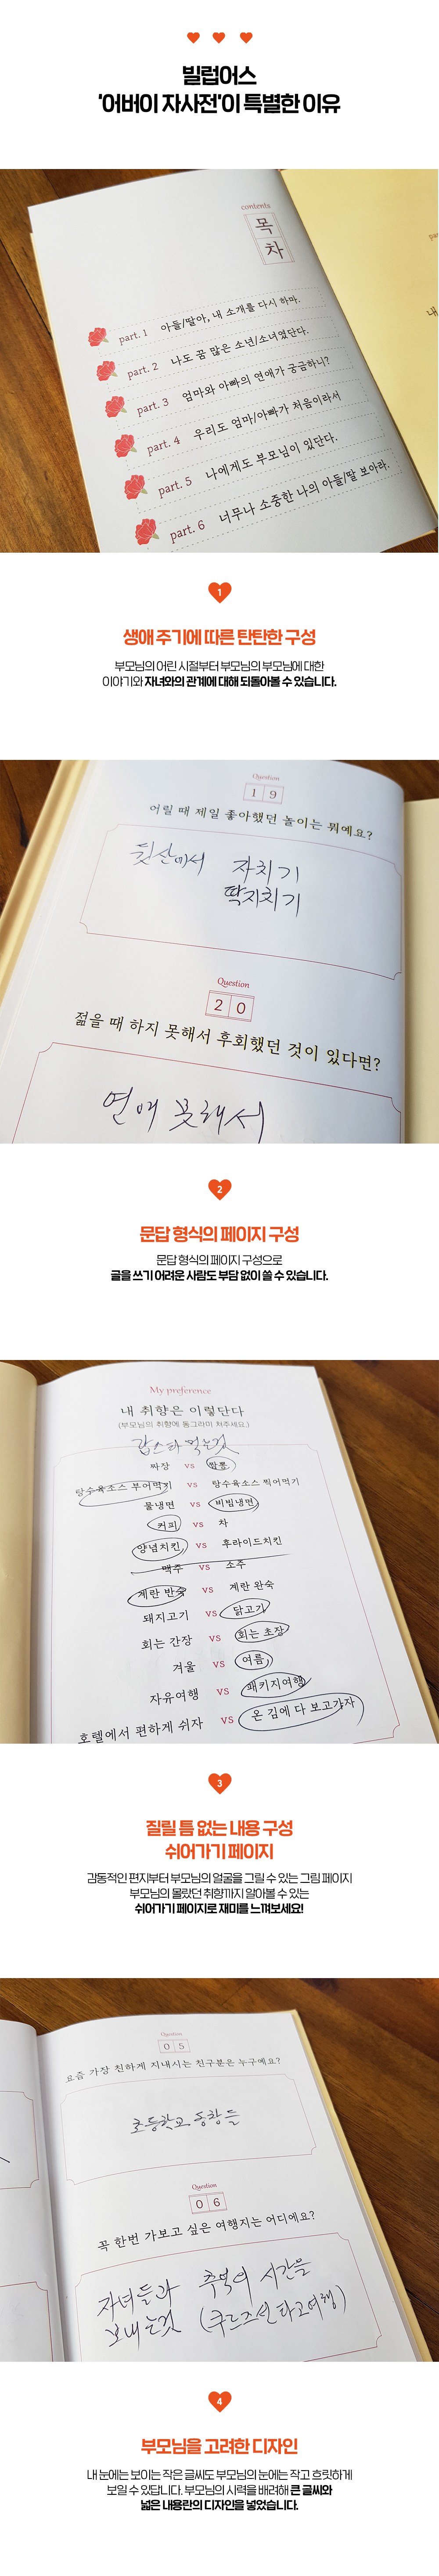 빌럽어스
'어버이 자사전'이 특별한 이유
contents
목
차
part. 1 아들/딸아, 내 소개를 다시 하마.
part. 2 나도 꿈 많은 소년/소녀였단다.
part. 3 엄마와 아빠의 연애가 궁금하니?
part. 4 우리도 엄마/아빠가 처음이라서
part. 5 나에게도 부모님이 있단다.
part. 6 너무나 소중한 나의 아들/딸 보아라.
1
생애 주기에 따른 탄탄한 구성
부모님의 어린 시절부터 부모님의 부모님에 대한
이야기와 자녀와의 관계에 대해 되돌아볼 수 있습니다.
Question
1 9
어릴 때 제일 좋아했던 놀이는 뭐예요?
뒷산에서 자치기
딱지치기
Question
2 0
젊을 때 하지 못해서 후회했던 것이 있다면?
연애 못해서
2
문답 형식의 페이지 구성
문답 형식의 페이지 구성으로
글을 쓰기 어려운 사람도 부담 없이 쓸 수 있습니다.
My preference
내 취향은 이렇단다
(부모님의 취향에 동그라미 쳐주세요.)
짜장 vs 짬뽕
탕수육소스 부어먹기 vs 탕수육소스 찍어먹기
물냉면 vs 비빔냉면
커피 vs 차
양념치킨 vs 후라이드치킨
맥주 vs 소주
계란 반숙 vs 계란 완숙
돼지고기 vs 닭고기
회는 간장 vs 회는 초장
겨울 vs 여름
자유여행 vs 패키지여행
호텔에서 편하게 쉬자 vs 온 김에 다 보고가자
3
질릴 틈 없는 내용 구성
쉬어가기 페이지
감동적인 편지부터 부모님의 얼굴을 그릴 수 있는 그림 페이지
부모님의 몰랐던 취향까지 알아볼 수 있는
쉬어가기 페이지로 재미를 느껴보세요!
Question
0 5
요즘 가장 친하게 지내시는 친구분은 누구예요?
초등학교 동창들
Question
0 6
꼭 한번 가보고 싶은 여행지는 어디에요?
자녀들과 추억의 시간을
보내는것 (쿠르즈선 타고여행)
4
부모님을 고려한 디자인
내 눈에는 보이는 작은 글씨도 부모님의 눈에는 작고 흐릿하게
보일 수 있답니다. 부모님의 시력을 배려해 큰 글씨와
넓은 내용란의 디자인을 넣었습니다.